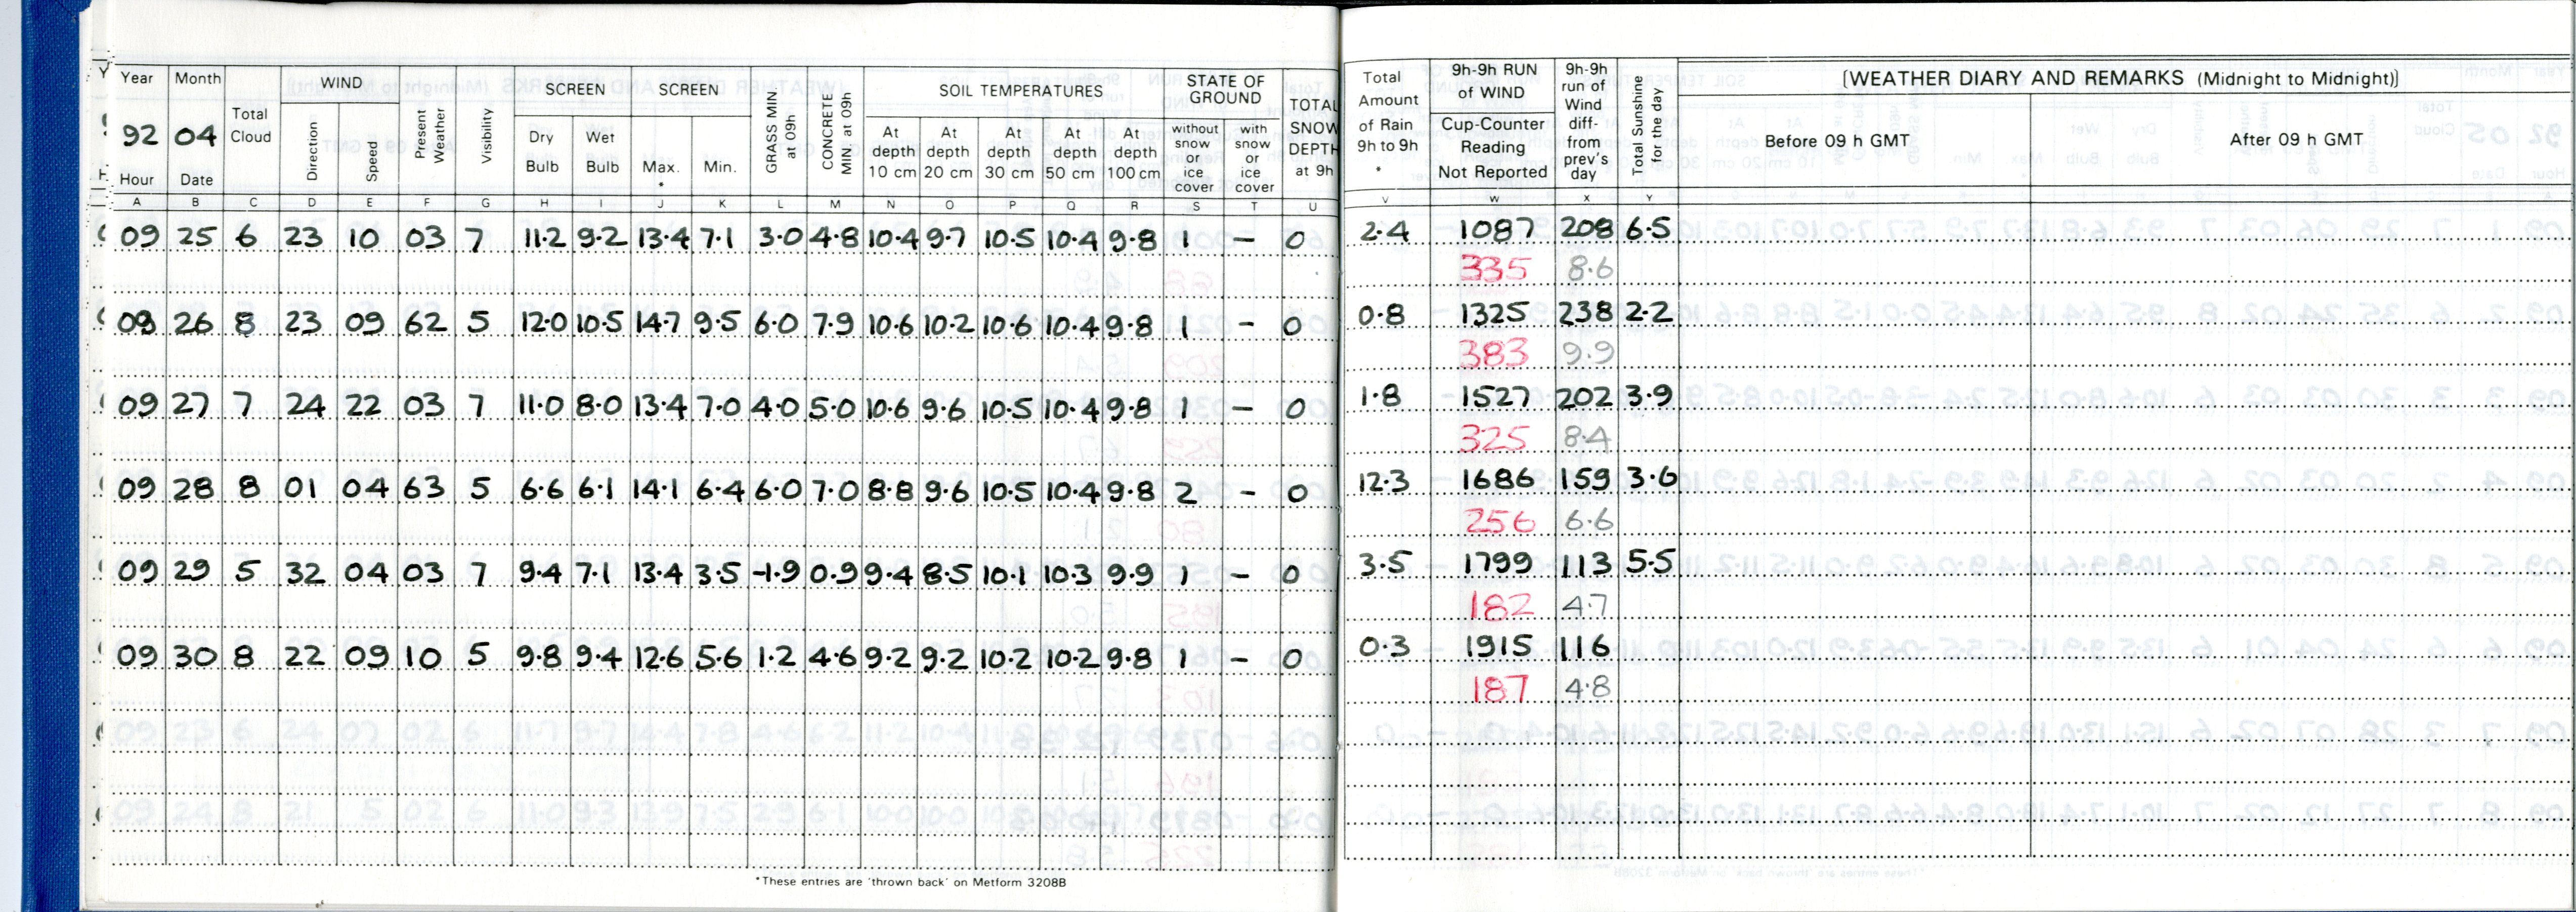 Year Month WIND SCREEN SCREEN SOIL TEMPERATURES STATE OF GROUND
92 04 Total Cloud Direction Speed Present Weather Visibility Dry Bulb Wet Bulb Max. * Min. GRASS MIN at 09h CONCRETE MIN. at 09h At depth 10 cm At depth 20 cm At depth 30 cm At depth 50 cm At depth 100 cm without snow or ice cover with snow or ice cover TOTAL SNOW DEPTH at 9h
Hour Date
A B C D E F G H I J K L M N O P Q R S T U
09 25 6 23 10 03 7 11.2 9.2 13.4 7.1 3.0 4.8 10.4 9.7 10.5 10.4 9.8 1 – 0
09 26 8 23 09 62 5 12.0 10.5 14.7 9.5 6.0 7.9 10.6 10.2 10.6 10.4 9.8 1 – 0
09 27 7 24 22 03 7 11.0 8.0 13.4 7.0 4.0 5.0 10.6 9.6 10.5 10.4 9.8 1 – 0
09 28 8 01 04 63 5 6.6 6.1 14.1 6.4 6.0 7.0 8.8 9.6 10.5 10.4 9.8 2 – 0
09 29 5 32 04 03 7 9.4 7.1 13.4 3.5 -1.9 0.9 9.4 8.5 10.1 10.3 9.9 1 – 0
09 30 8 22 09 10 5 9.8 9.4 12.6 5.6 1.2 4.6 9.2 9.2 10.2 10.2 9.8 1 – 0
09 23 6 24 07 02 6 11.7 9.7 14.4 7.8 4.6 6.2 11.2 10.4
09 24 8 21 5 02 6 11.0 9.3 13.9 7.5 2.9 6.1 10.0 10.0
*These entries are 'thrown back' on Metform 3208B
Total Amount of Rain 9h to 9h * 9h-9h RUN of WIND Cup-Counter Reading Not Reported 9h-9h run of Wind diff- from prev's day Total Sunshine for the day [WEATHER DIARY AND REMARKS (Midnight to Midnight)]
Before 09 h GMT After 09 h GMT
V W X Y
2.4 1087 208 6.5
335 8.6
0.8 1325 238 2.2
383 9.9
1.8 1527 202 3.9
325 8.4
12.3 1686 159 3.6
256 6.6
3.5 1799 113 5.5
182 4.7
0.3 1915 116
187 4.8